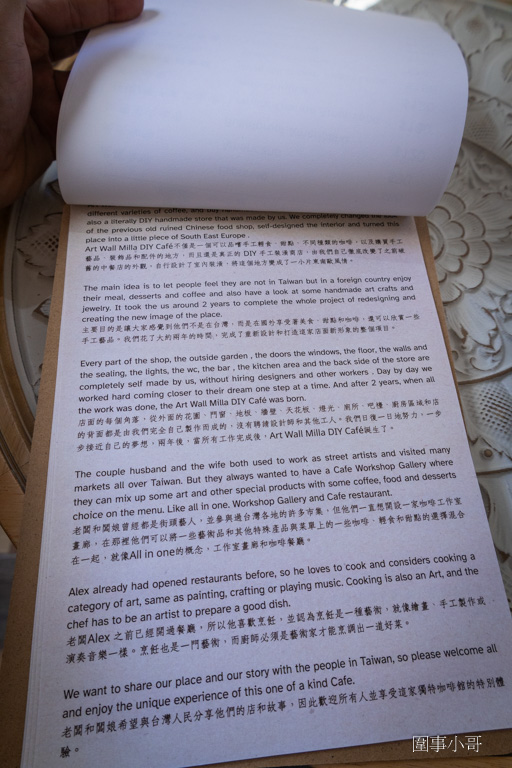 different varieties of coffee, and buy
also a literally DIY handmade store that was made by us. We completely changed the
of the previous old ruined Chinese food shop, self-designed the interior and turned this
place into a little piece of South East Europe .
Art Wall Milla DIY Café不僅是一個可以品嚐手工輕食、甜點、不同種類的咖啡,以及購買手工
藝品、裝飾品和配件的地方,而且還是真正的 DIY 手工裝潢商店,由我們自己徹底改變了之前破
舊的中餐店的外觀,自行設計了室內裝潢,將這個地方變成了一小片東南歐風情。
The main idea is to let people feel they are not in Taiwan but in a foreign country enjoy
their meal, desserts and coffee and also have a look at some handmade art crafts and
jewelry. It took the us around 2 years to complete the whole project of redesigning and
creating the new image of the place.
主要目的是讓大家感覺到他們不是在台灣,而是在國外享受著美食、甜點和咖啡,還可以欣賞一些
手工藝品。我們花了大約兩年的時間,完成了重新設計和打造這家店面新形象的整個項目。
Every part of the shop, the outside garden , the doors the windows, the floor, the walls and
the sealing, the lights, the wc, the bar , the kitchen area and the back side of the store are
completely self made by us, without hiring designers and other workers . Day by day we
worked hard coming closer to their dream one step at a time. And after 2 years, when all
the work was done, the Art Wall Milla DIY Café was born.
店面的每個角落,從外面的花園、門窗、地板、牆壁、天花板、燈光、廁所、吧檯、廚房區域和店
的背面都是由我們完全自己製作而成的,沒有聘請設計師和其他工人。我們日復一日地努力,一步
步接近自己的夢想。兩年後,當所有工作完成後,Art Wall Milla DIY Café誕生了。
The couple husband and the wife both used to work as street artists and visited many
markets all over Taiwan. But they always wanted to have a Cafe Workshop Gallery where
they can mix up some art and other special products with some coffee, food and desserts
choice on the menu. Like all in one. Workshop Gallery and Cafe restaurant.
老闆和闆娘曾經都是街頭藝人,並參與過台灣各地的許多市集,但他們一直想開設一家咖啡工作室
畫廊,在那裡他們可以將一些藝術品和其他特殊產品與菜單上的一些咖啡、輕食和甜點的選擇混合
在一起,就像All in one的概念,工作室畫廊和咖啡餐廳。
Alex already had opened restaurants before, so he loves to cook and considers cooking a
category of art, same as painting, crafting or playing music. Cooking is also an Art, and the
chef has to be an artist to prepare a good dish.
老闆Alex 之前已經開過餐廳,所以他喜歡烹飪,並認為烹飪是一種藝術,就像繪畫、手工製作或
演奏音樂一樣。烹飪也是一門藝術,而廚師必須是藝術家才能烹調出一道好菜。
We want to share our place and our story with the people in Taiwan, so please welcome all
and enjoy the unique experience of this one of a kind Cafe.
老闆和闆娘希望與台灣人民分享他們的店和故事,因此歡迎所有人並享受這家獨特咖啡館的特別體
驗。
圍事小哥